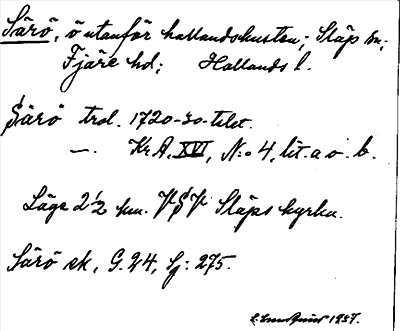 Särö, ö utanför hallandskusten; Släp sn;
Fjäre hd; Hallands l.
Särö trol. 1720-30-talet.
—. Kr.A. XVI, N:o 4, lit. a o. b.
Läge 2 1/2 km. VSV Släps kyrka.
Särö sk, G. 24, Sj: 275.
1957.